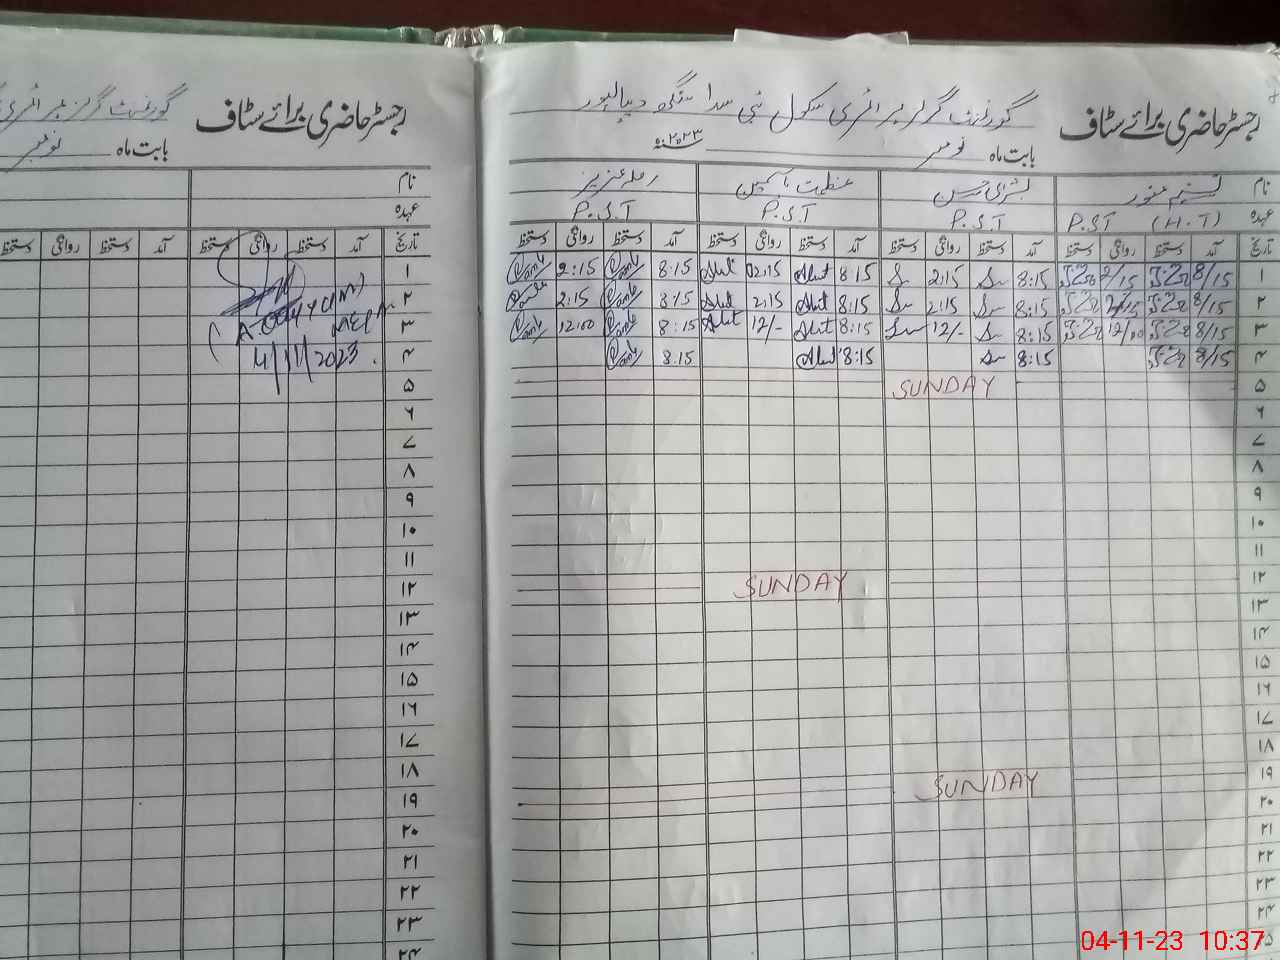 رجسٹر حاضری برائے سٹاف گورنمنٹ گرلز پرائمری سکول نبی سدا سنگھ دیپالپور
بابت ماہ نومبر ۲۰۲۳ء
نام تسنیم منور بشریٰ عظمت یاسمین رملہ عزیز
عہدہ P.S.T (H.T) P.S.T P.S.T P.S.T
تاریخ آمد دستخط روانگی دستخط آمد دستخط روانگی دستخط آمد دستخط روانگی دستخط آمد دستخط روانگی دستخط
۱ 8/15 2/15 8:15 2:15 8:15 2:15 8:15 2:15
۲ 8/15 2/15 8:15 2:15 8:15 2:15 8:15 2:15
۳ 8/15 12/00 8:15 12/- 8:15 12/- 8:15 12:00
۴ 8/15 8:15 8:15 8:15
۵ SUNDAY
۶
۷
۸
۹
۱۰
۱۱
۱۲ SUNDAY
۱۳
۱۴
۱۵
۱۶
۱۷
۱۸
۱۹ SUNDAY
۲۰
۲۱
۲۲
۲۳
۲۴
۲۵
رجسٹر حاضری برائے سٹاف گورنمنٹ گرلز پرائمری
بابت ماہ نومبر
نام
عہدہ
تاریخ آمد دستخط روانگی دستخط آمد دستخط
۱
۲
۳
4/11/2023
۴
۵
۶
۷
۸
۹
۱۰
۱۱
۱۲
۱۳
۱۴
۱۵
۱۶
۱۷
۱۸
۱۹
۲۰
۲۱
۲۲
۲۳
۲۴
04-11-23 10:37